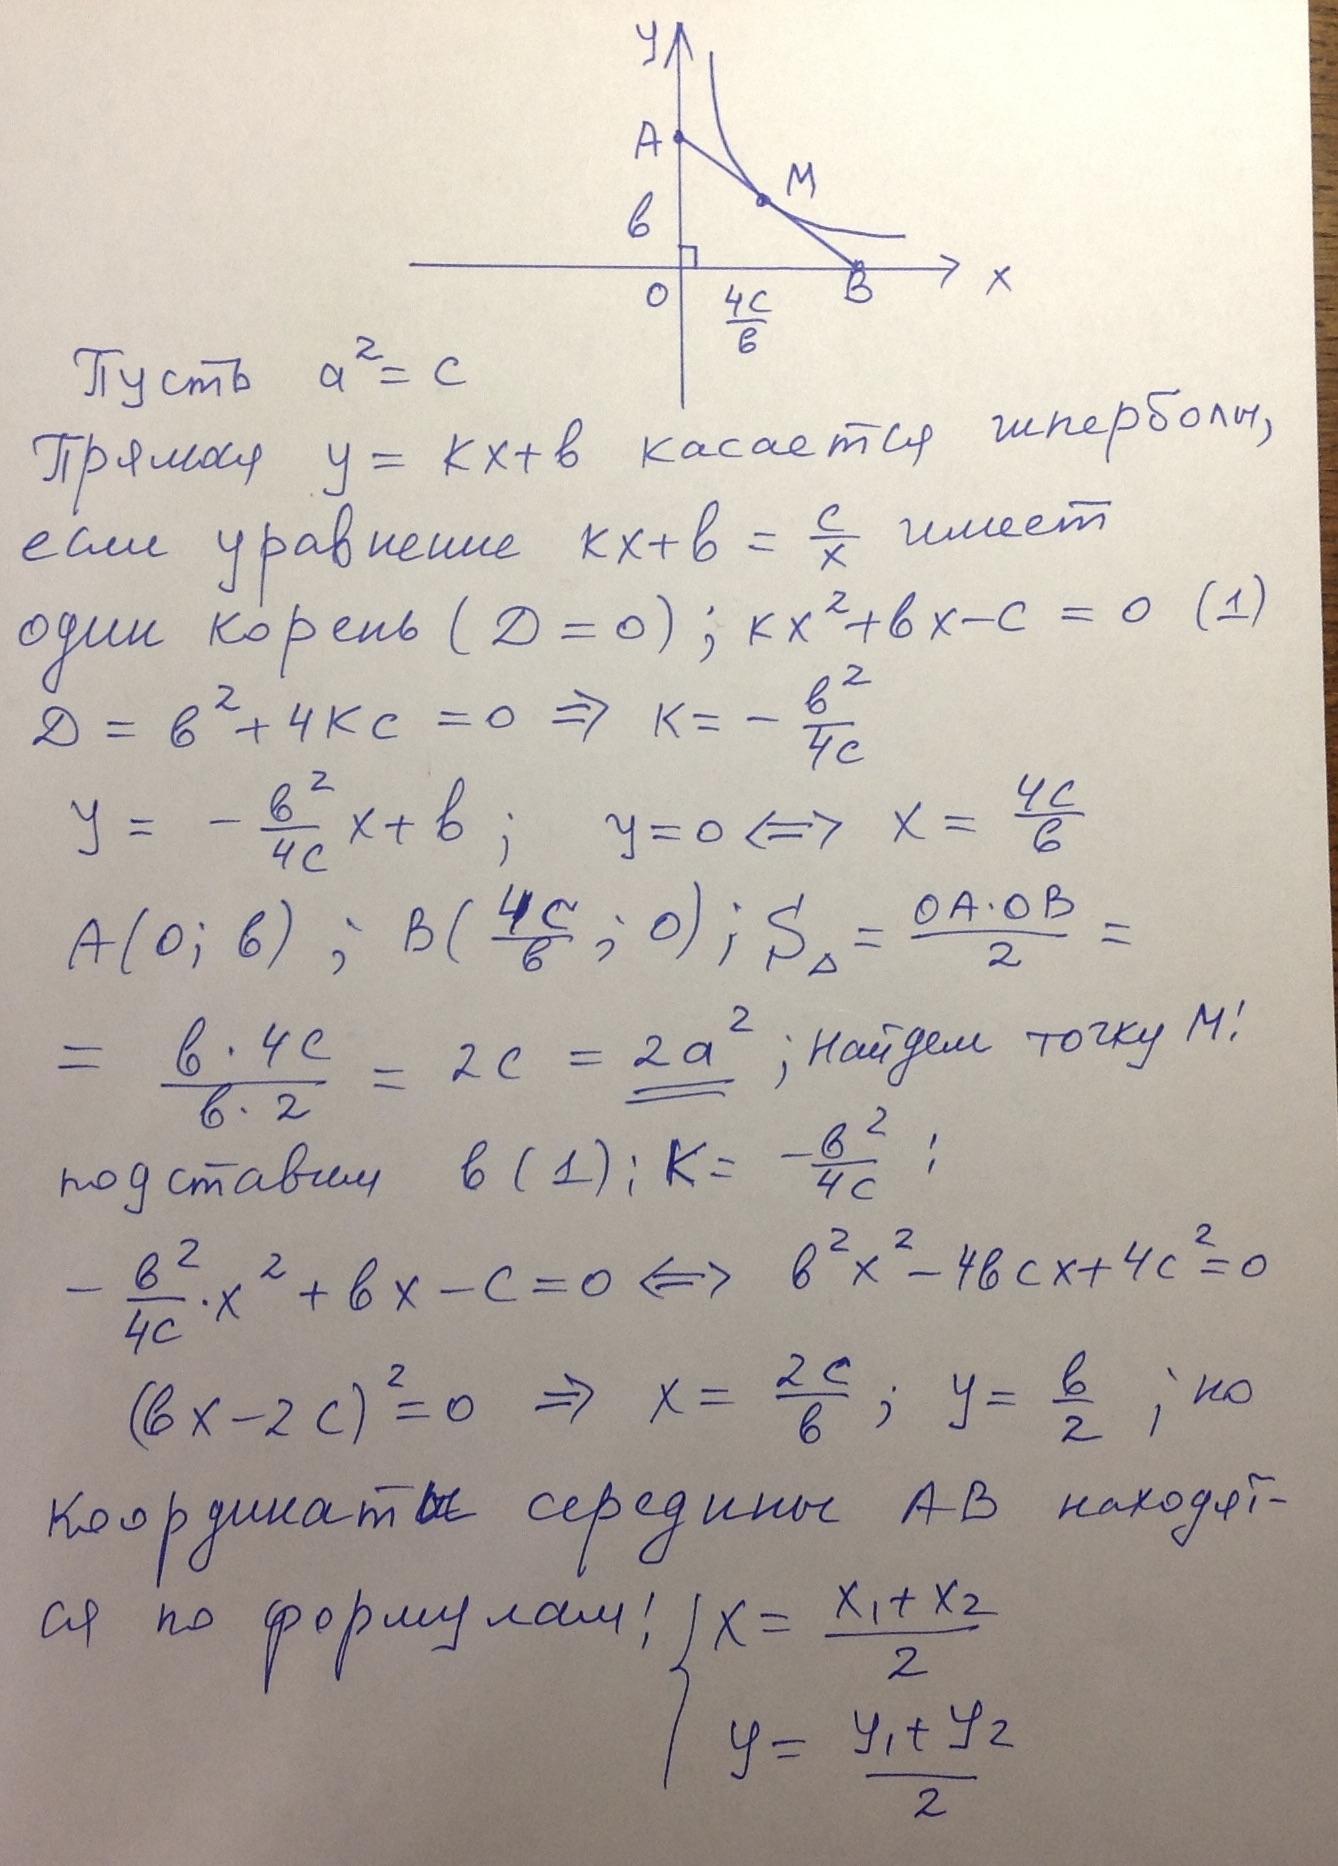 y
A
M
в
0
4c/в
B
x
Пусть a² = c
Прямая y = kx+в касается гиперболы,
если уравнение kx+в = c/x имеет
один корень (D = 0); kx²+вx-c = 0 (1)
D = в²+4kc = 0 ⇒ k = -в²/4c
y = -в²/4c x+в; y=0 ⇔ x = 4c/в
A(0; в); B(4c/в; 0); S△ = OA·OB/2 =
= в·4c/в·2 = 2c = 2a²; Найдем точку M:
подставим в (1): k = -в²/4c:
-в²/4c·x²+вx-c=0 ⇔ в²x²-4вcx+4c²=0
(вx-2c)²=0 ⇒ x = 2c/в; y = в/2; но
координаты середины AB находят-
ся по формулам: { x = x₁+x₂/2
y = y₁+y₂/2